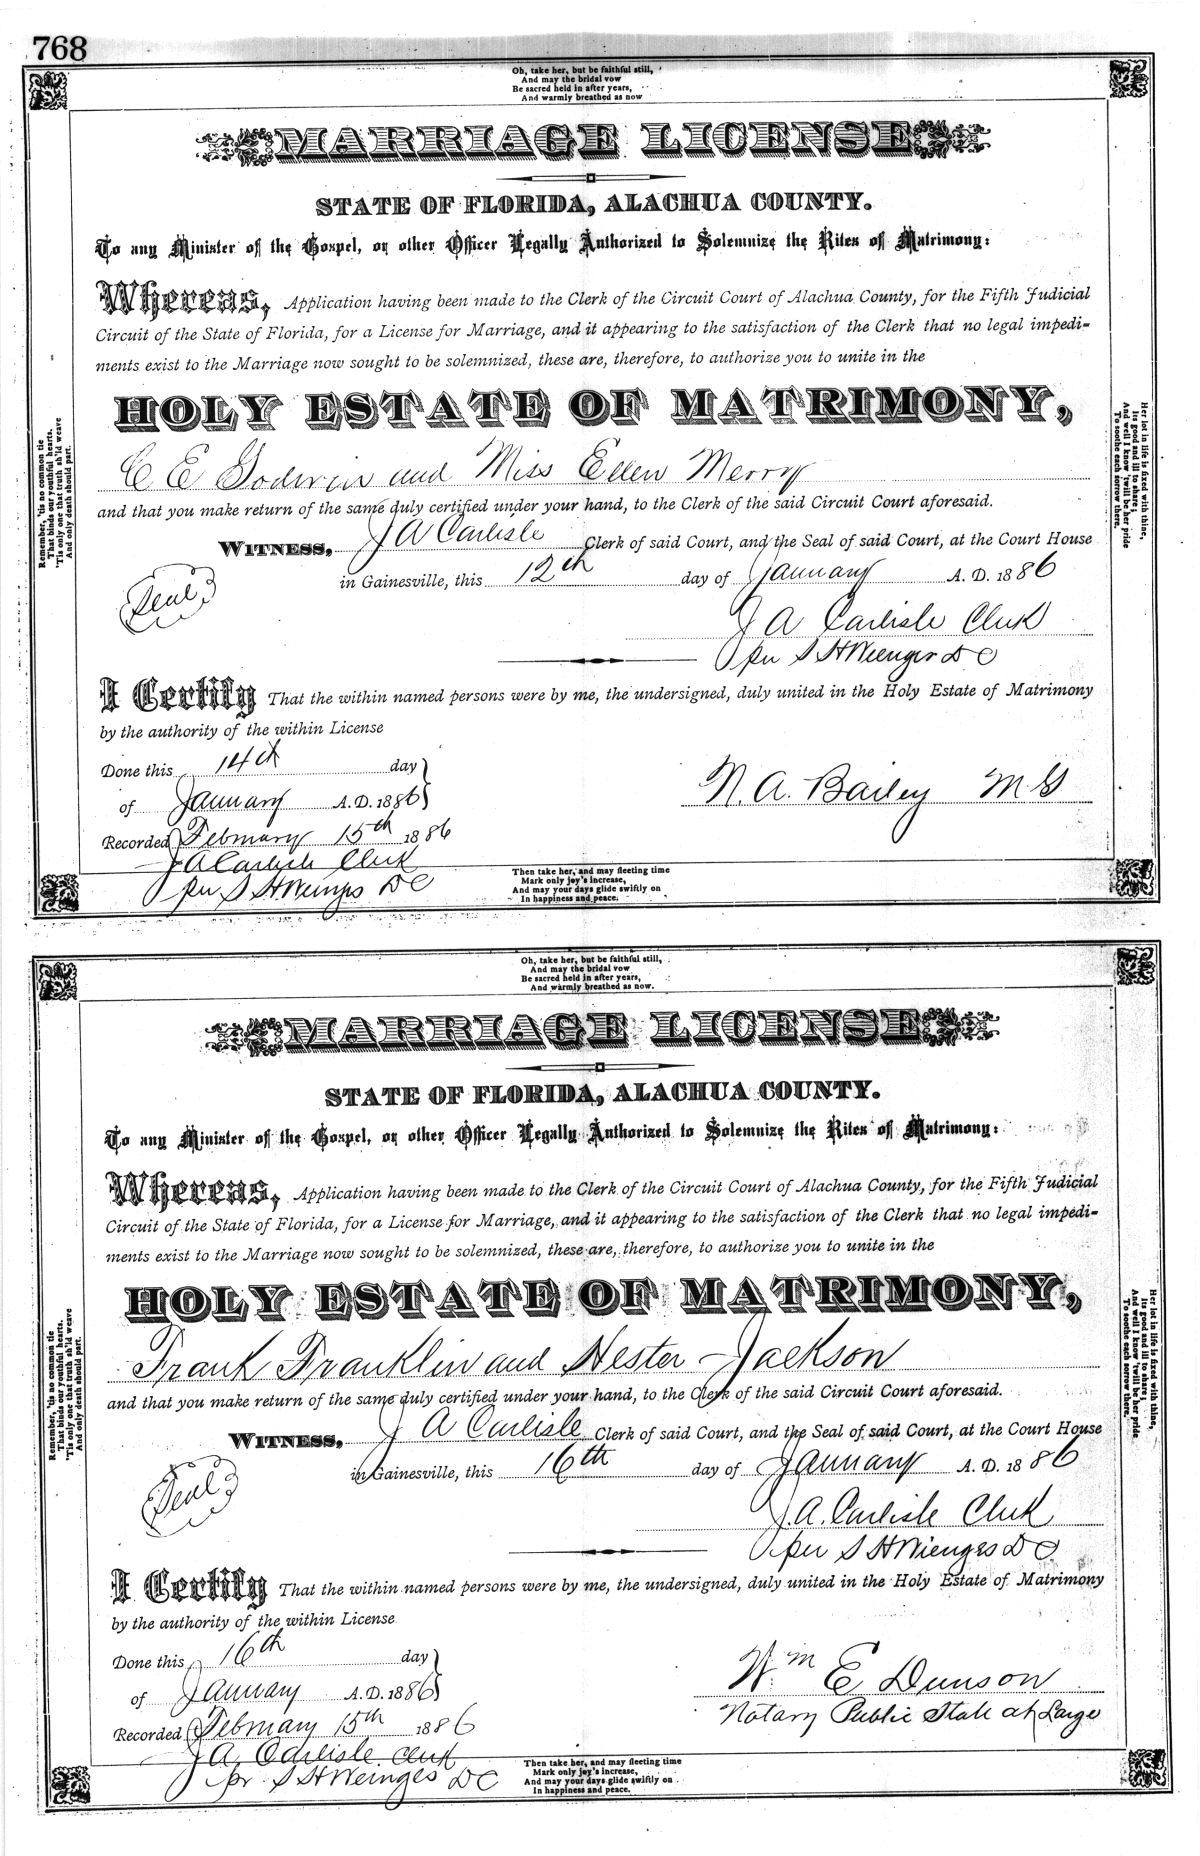 768
Oh, take her, but be faithful still,
And may the bridal vow
Be sacred held in after years,
And warmly breathed as now
MARRIAGE LICENSE
STATE OF FLORIDA, ALACHUA COUNTY.
To any Minister of the Gospel, or other Officer Legally Authorized to Solemnize the Rites of Matrimony:
Whereas, Application having been made to the Clerk of the Circuit Court of Alachua County, for the Fifth Judicial
Circuit of the State of Florida, for a License for Marriage, and it appearing to the satisfaction of the Clerk that no legal impedi-
ments exist to the Marriage now sought to be solemnized, these are, therefore, to authorize you to unite in the
HOLY ESTATE OF MATRIMONY,
C E Godwin and Miss Ellen Merry
and that you make return of the same duly certified under your hand, to the Clerk of the said Circuit Court aforesaid.
WITNESS, J A Carlisle Clerk of said Court, and the Seal of said Court, at the Court House
in Gainesville, this 12th day of January A. D. 1886
Seal
J A Carlisle Clerk
per S H Wienges D C
I Certify That the within named persons were by me, the undersigned, duly united in the Holy Estate of Matrimony
by the authority of the within License
Done this 14th day
of January A. D. 1886
N. A. Bailey M G
Recorded February 15th 1886
J A Carlisle Clerk
per S H Weinges D C
Remember, 'tis no common tie
That binds our youthful hearts.
'Tis only one that truth sh'ld weave
And only death should part.
Her lot in life is fixed with thine,
Its good and ill to share;
And well I know 'twill be her pride
To soothe each sorrow there.
Then take her, and may fleeting time
Mark only joy's increase,
And may your days glide swiftly on
In happiness and peace.
Oh, take her, but be faithful still,
And may the bridal vow
Be sacred held in after years,
And warmly breathed as now.
MARRIAGE LICENSE
STATE OF FLORIDA, ALACHUA COUNTY.
To any Minister of the Gospel, or other Officer Legally Authorized to Solemnize the Rites of Matrimony:
Whereas, Application having been made to the Clerk of the Circuit Court of Alachua County, for the Fifth Judicial
Circuit of the State of Florida, for a License for Marriage, and it appearing to the satisfaction of the Clerk that no legal impedi-
ments exist to the Marriage now sought to be solemnized, these are, therefore, to authorize you to unite in the
HOLY ESTATE OF MATRIMONY,
Frank Franklin and Hester Jackson
and that you make return of the same duly certified under your hand, to the Clerk of the said Circuit Court aforesaid.
WITNESS, J A Carlisle Clerk of said Court, and the Seal of said Court, at the Court House
in Gainesville, this 16th day of January A. D. 1886
Seal
J. A. Carlisle Clerk
per S H Wienges D C
I Certify That the within named persons were by me, the undersigned, duly united in the Holy Estate of Matrimony
by the authority of the within License
Done this 16th day
of January A. D. 1886
Wm E Dunson
Notary Public State at Large
Recorded February 15th 1886
J A Carlisle Clerk
pr S H Weinges D C
Remember, 'tis no common tie
That binds our youthful hearts.
'Tis only one that truth sh'ld weave
And only death should part.
Her lot in life is fixed with thine,
Its good and ill to share;
And well I know 'twill be her pride
To soothe each sorrow there.
Then take her, and may fleeting time
Mark only joy's increase,
And may your days glide swiftly on
In happiness and peace.